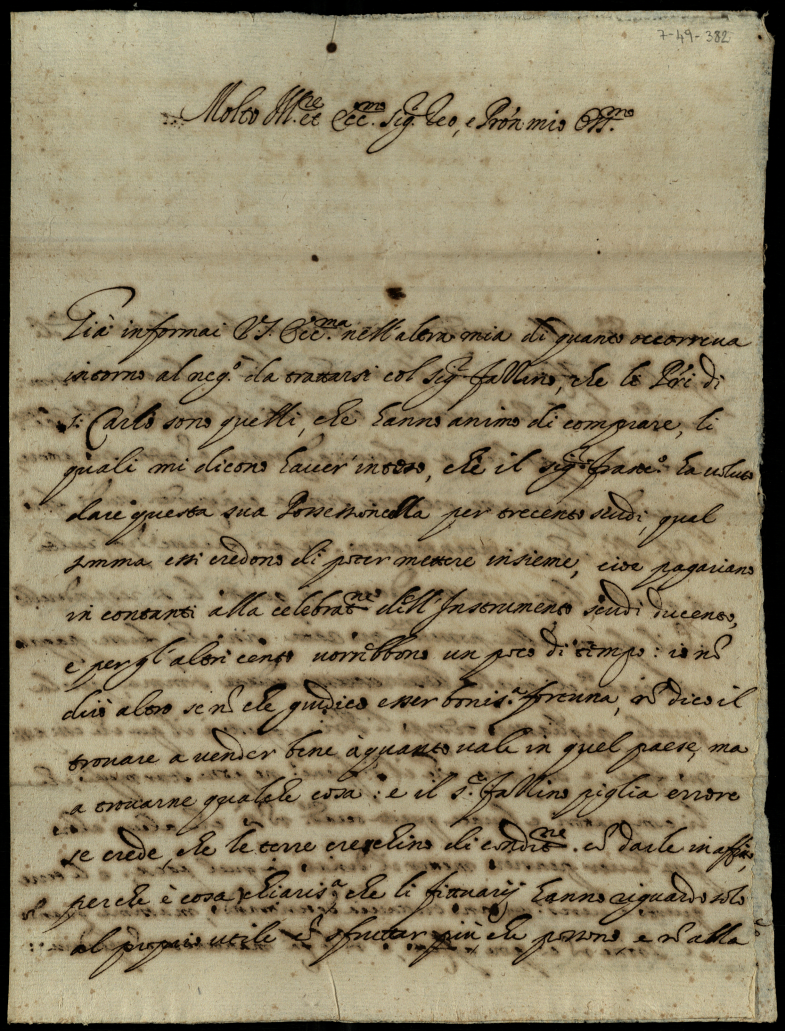 7-49-382
Molto Ill.re et Ecc.mo Sig.r e Pròn mio Oss.mo
Già informai V.S. Ecc.ma nell'altra mia di quanto occorreva
intorno al neg.o da trattarsi col Sig.r Fallino, che li Pri di
S. Carlo sono quelli, che hanno animo di comprare, li
quali mi dicono haver inteso, che il sig.r Franc.o ha voluto
dare questa sua Possessioncella per trecento scudi, qual
somma essi credono di poter mettere insieme, cioè pagariano
in contanti alla celebrat.ne dell'Instrumento scudi ducento,
e per gl'altri cento vorrebbono un poco di tempo: io nō
dirò altro se nō che giudico esser bonis.a fortuna, nō dico il
trovare a vender bene à quanto vale in quel paese, ma
a trovarne qualche cosa: e il S.r Fallino piglia errore
se crede, che le terre creschino di condit.ne cō darle in affitto,
perche è cosa chiaris.a che li fittuarij hanno riguardo solo
al proprio utile cō sfruttar più che possono, e nō alla